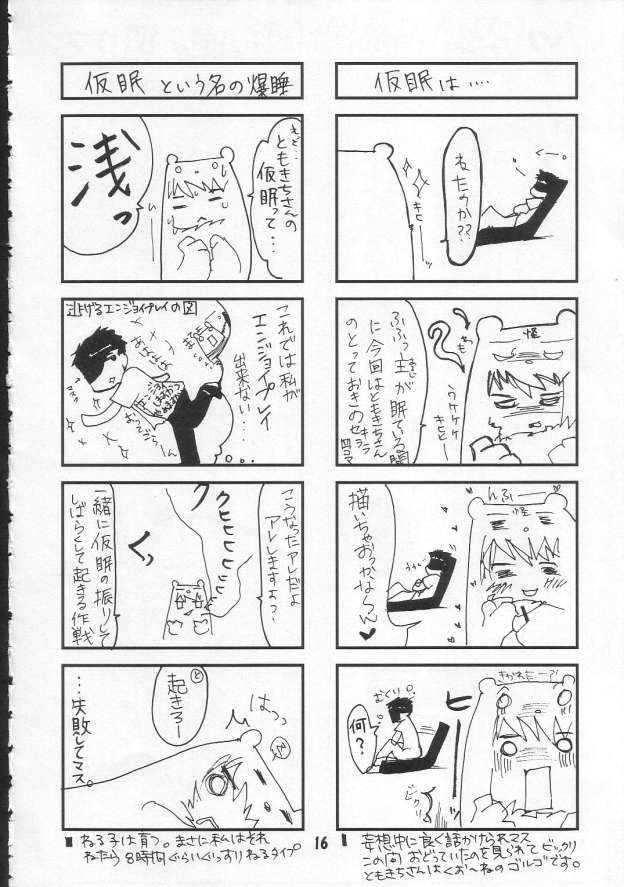 仮眠は‥‥
ねたのか??
キヒーーッ
怪
ウケケケ
キヒヒー
ふふっ…主が眠ている間
に今回はともきちさん
のとっておきのセキララ
凹コマ
んふー
怪
描いちゃおっかなーん♥
きかれたーーっ!
ヒー
むくり。
何?
ビクッ
妄想中に良く話かけられマス
この間、おどっていたのを見られてビックリ
ともきちさんはくお〜ねのゴルゴです。
仮眠という名の爆睡
えと…
ともきちさんの
仮眠って…
浅っ
逃げるエンジョイプレイの図
これでは私が
エンジョイプレイ
出来ない…
こうなったらアレだよ
アレしますよっ?
クヒヒヒヒッ
くっ
一緒に仮眠の振りして
しばらくして起きる作戦
と
起きろー
はっっ
…失敗してマス。
ねる子は育つ。まさに私はそれ
ねたら8時間ぐらいぐっすりねるタイプ
16